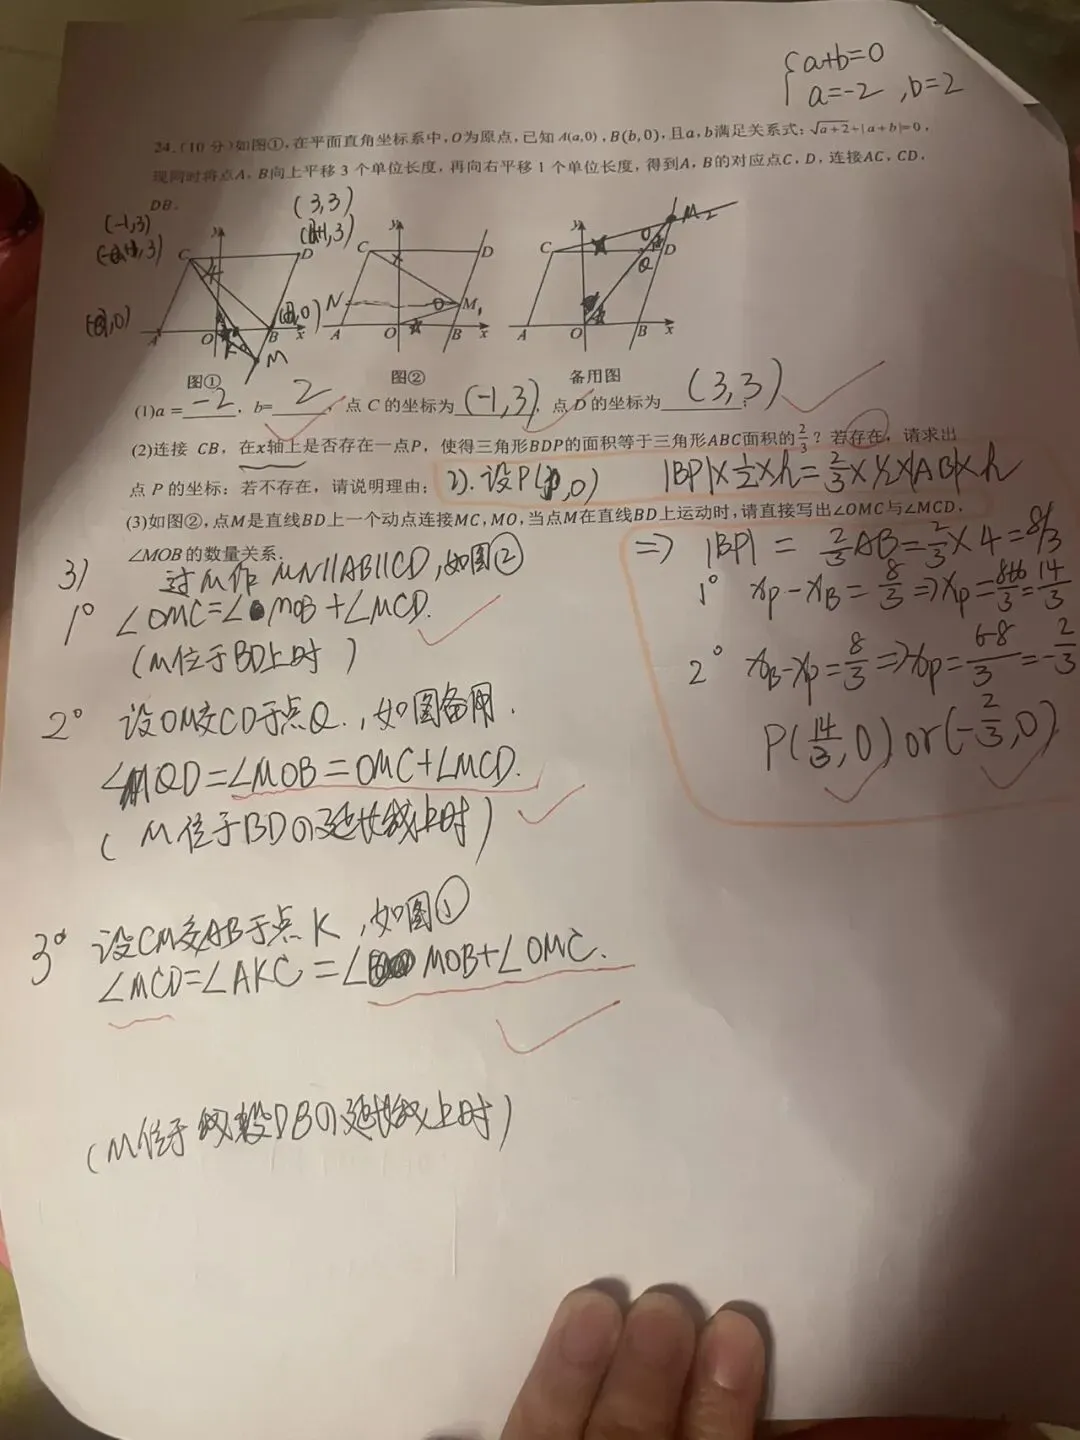 {a+b=0
a=-2 ,b=2
24.(10 分)如图①,在平面直角坐标系中,O为原点,已知 A(a,0),B(b,0),且a,b满足关系式:√a+2+|a+b|=0,
现同时将点A,B向上平移 3 个单位长度,再向右平移 1 个单位长度,得到A,B的对应点C,D,连接AC,CD,
DB.
(-1,3)
(3,3)
C D A O B x y K M
图①
C D N M₁ A O B x y
图②
C D M₂ Q A O B x y
备用图
(1)a = -2 , b= 2 ,点 C 的坐标为 (-1,3) ,点 D 的坐标为 (3,3) ;
(2)连接 CB,在x轴上是否存在一点P,使得三角形BDP的面积等于三角形ABC面积的2/3?若存在,请求出
点 P 的坐标;若不存在,请说明理由;
2).设P(p,0) |BP|×1/2×h=2/3×1/2×|AB|×h
(3)如图②,点M是直线BD上一个动点连接MC,MO,当点M在直线BD上运动时,请直接写出∠OMC与∠MCD,
∠MOB 的数量关系.
=> |BP| = 2/3AB=2/3×4=8/3
1° xp-xB=8/3=>xp=8+6/3=14/3
2° xB-xp=8/3=>xp=6-8/3=-2/3
P(14/3,0) or(-2/3,0)
3) 过M作MN||AB||CD,如图②
1° ∠OMC=∠MOB+∠MCD.
(M位于BD上时)
2° 设OM交CD于点Q.,如图备用.
∠MQD=∠MOB=OMC+∠MCD.
(M位于BDの延长线上时)
3° 设CM交AB于点K,如图①
∠MCD=∠AKC=∠MOB+∠OMC.
(M位于线段DBの延长线上时)